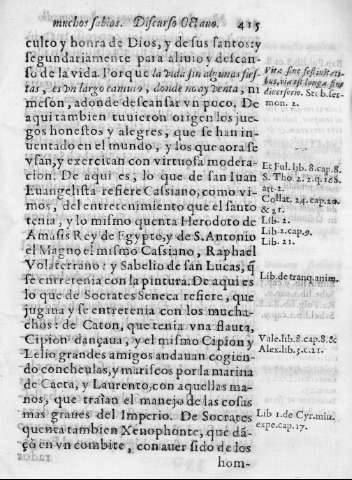 muchos sabios. Discurso Octauo. 415
culto y honra de Dios, y de sus santos: y
segundariamente para aliuio y descan-
so de la vida. Porque la vida sin algunas fies-
tas, es vn largo camino, donde no ay venta, ni
meson, adonde descansar vn poco. De
aqui tambien tuuieron origen los jue-
gos honestos y alegres, que se han in-
uentado en el mundo, y los que aora se
vsan, y exercitan con virtuosa modera-
cion. De aqui es, lo que de san Iuan
Euangelista refiere Cassiano, como vi-
mos, del entretenimiento que el santo
tenia, y lo mismo quenta Herodoto de
Amasis Rey de Egypto, y de S. Antonio
el Magno el mismo Cassiano, Raphael
Volaterrano: y Sabelio de san Lucas, q̃
se entretenia con la pintura. De aqui es
lo que de Socrates Seneca refiere, que
jugaua y se entretenia con los mucha-
chos: de Caton, que tenia vna flauta,
Cipion dançaua, y el mismo Capion y
Lelio grandes amigos andauan cogien-
do concheulas, y mariscos por la marina
de Caeta, y Laurento, con aquellas ma-
nos, que traian el manejo de las cosas
mas graues del Imperio. De Socrates
quenta tambien Xenophonte, que dã-
çò en vn combite, con auer sido de los
hom-
Vita sine festiuitati-
bus, via est longa sine
diuersorio. Stob. ser-
mon. 2.
Et Ful. lib. 8. cap. 8.
S. Tho. 2. 2. q. 168.
art. 2.
Collat. 24. cap. 20.
& 21.
Lib. 2.
Lib. 2. cap. 9.
Lib. 21.
Lib. de tranq. anim.
Vale. lib. 8. cap. 8. &
Alex. lib. 3. c. 21.
Lib 1. de Cyr. miu.
expe. cap. 17.